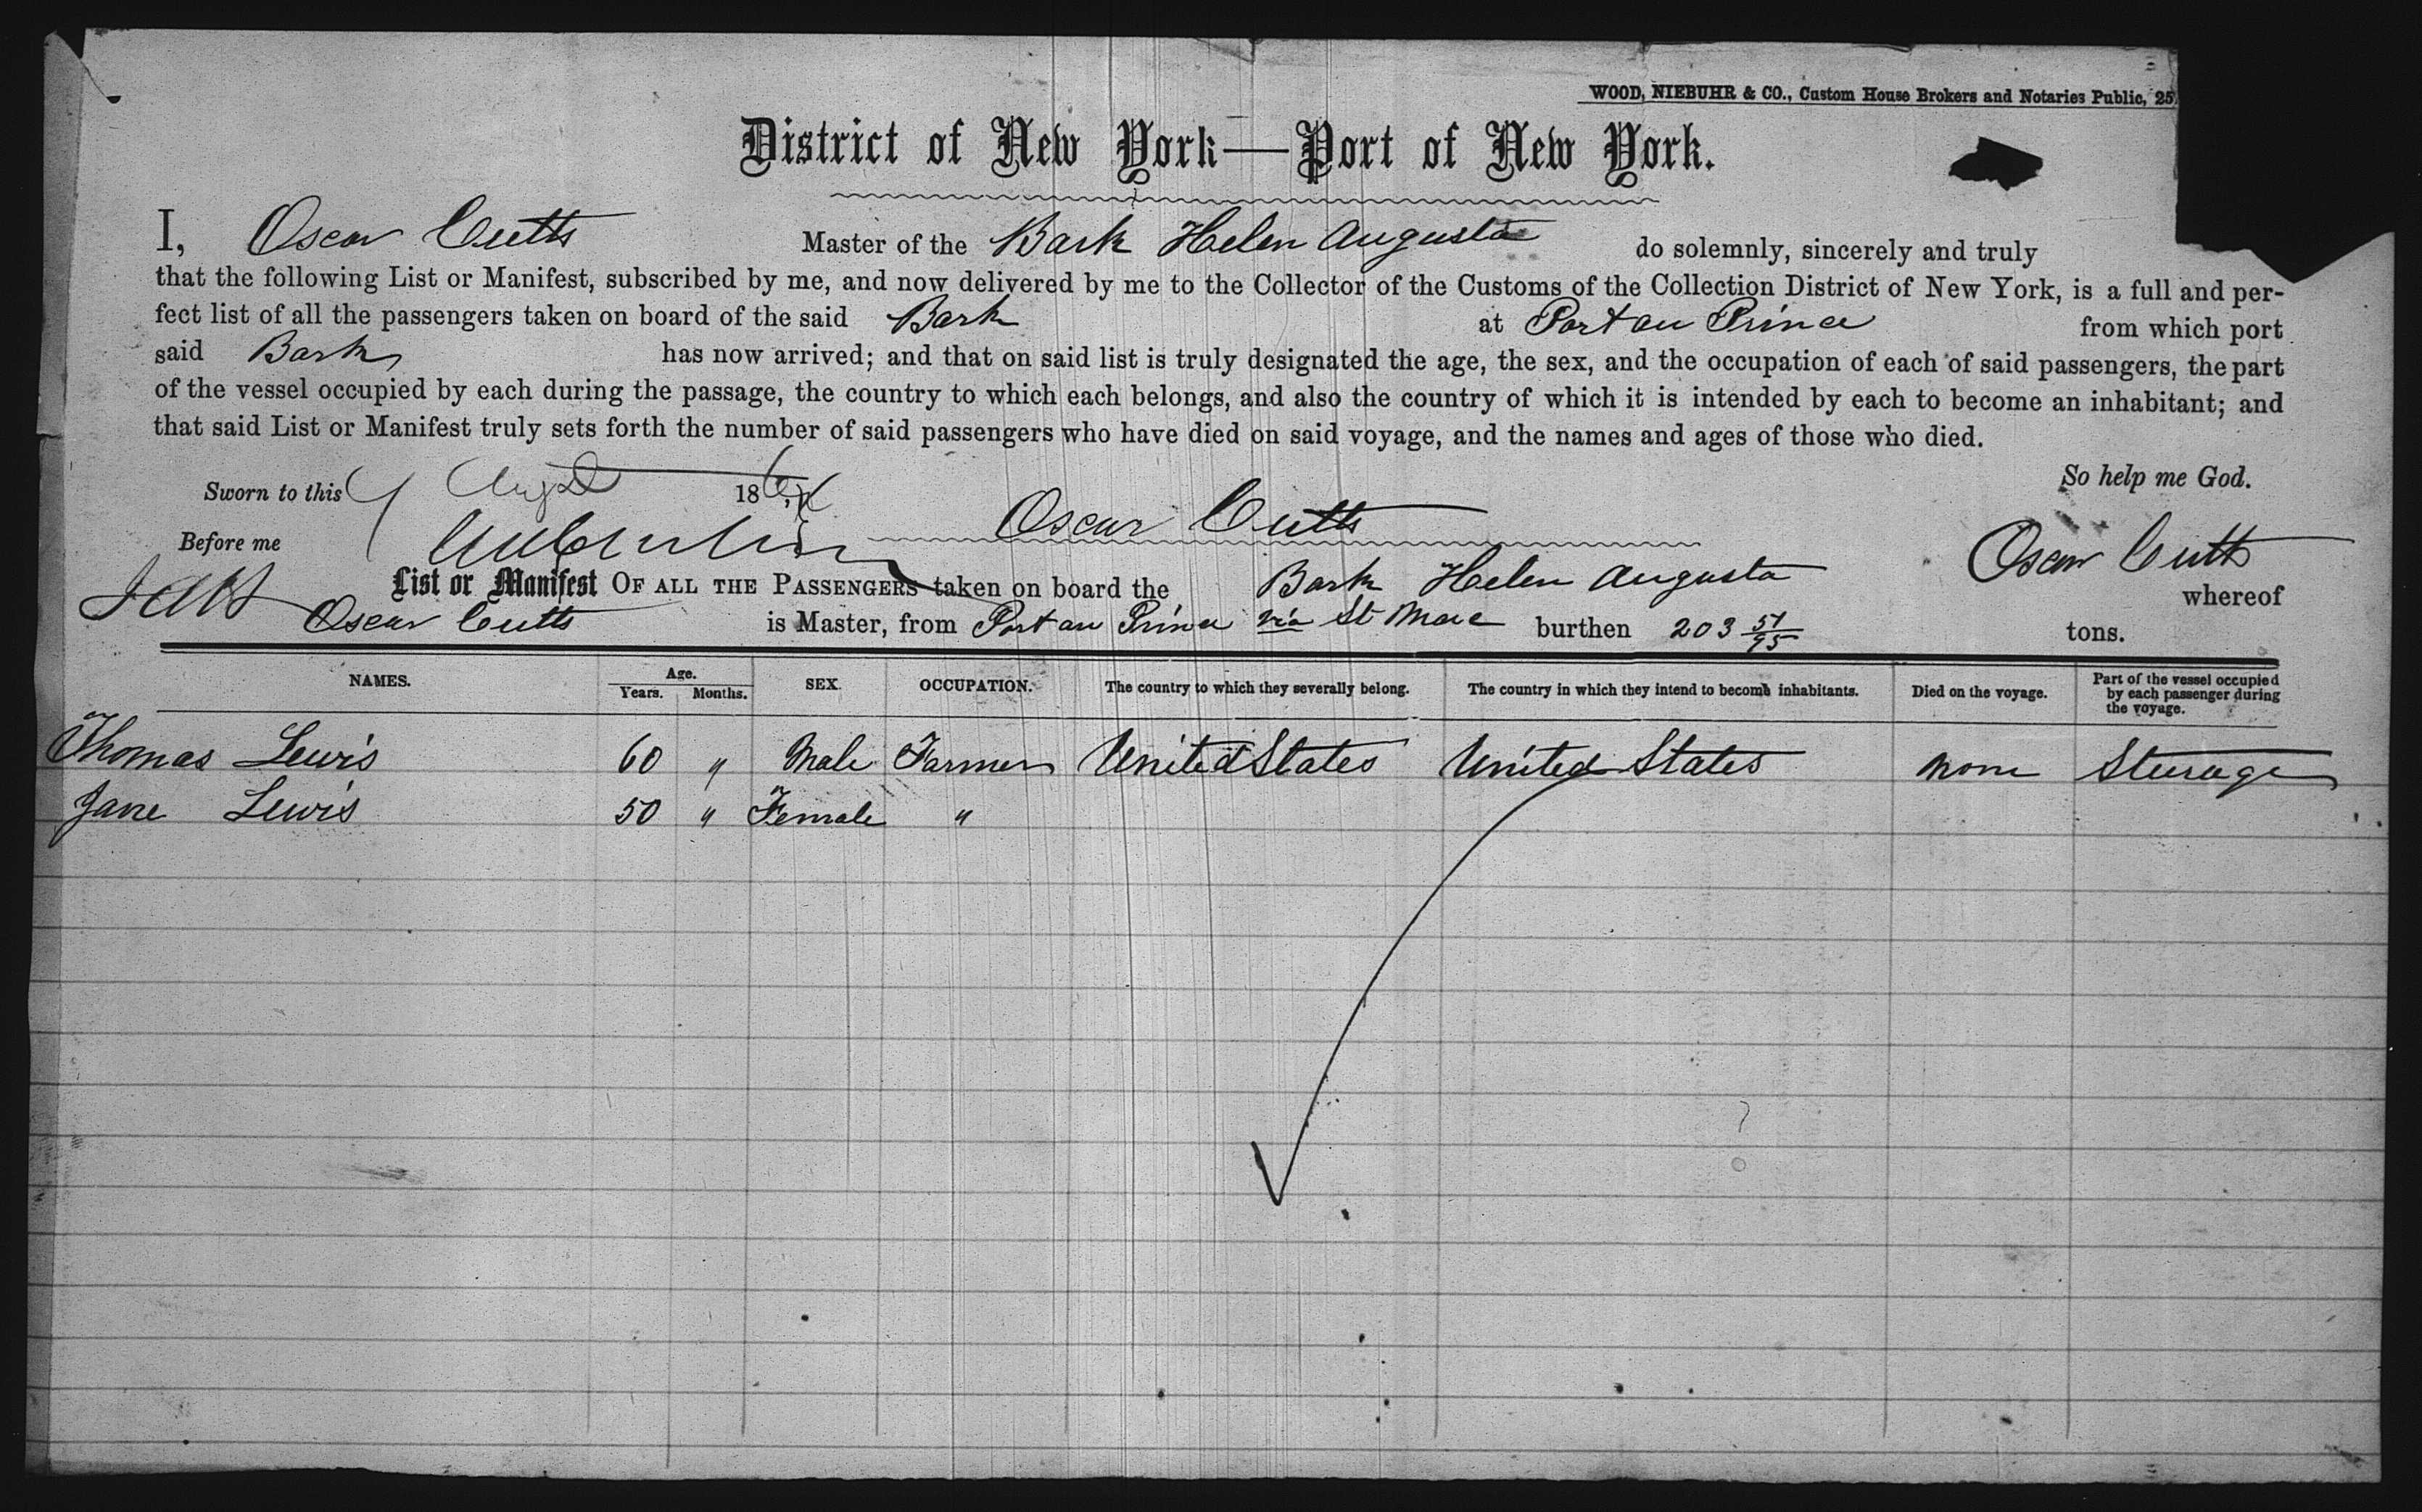 WOOD, NIEBUHR & CO., Custom House Brokers and Notaries Public, 25
District of New York—Port of New York.
I, Oscar Cutts Master of the Bark Helen Augusta do solemnly, sincerely and truly
that the following List or Manifest, subscribed by me, and now delivered by me to the Collector of the Customs of the Collection District of New York, is a full and per-
fect list of all the passengers taken on board of the said Bark at Port au Prince from which port
said Bark has now arrived; and that on said list is truly designated the age, the sex, and the occupation of each of said passengers, the part
of the vessel occupied by each during the passage, the country to which each belongs, and also the country of which it is intended by each to become an inhabitant; and
that said List or Manifest truly sets forth the number of said passengers who have died on said voyage, and the names and ages of those who died.
So help me God.
Sworn to this 9 August 186
Oscar Cutts
Before me
List or Manifest OF ALL THE PASSENGERS taken on board the Bark Helen Augusta Oscar Cutts whereof
Oscar Cutts is Master, from Port au Prince via St Marc burthen 203 51/95 tons.
NAMES. Age. Years. Months. SEX. OCCUPATION. The country to which they severally belong. The country in which they intend to become inhabitants. Died on the voyage. Part of the vessel occupied by each passenger during the voyage.
Thomas Lewis 60 " Male Farmer United States United States none Steerage
Jane Lewis 50 " Female "